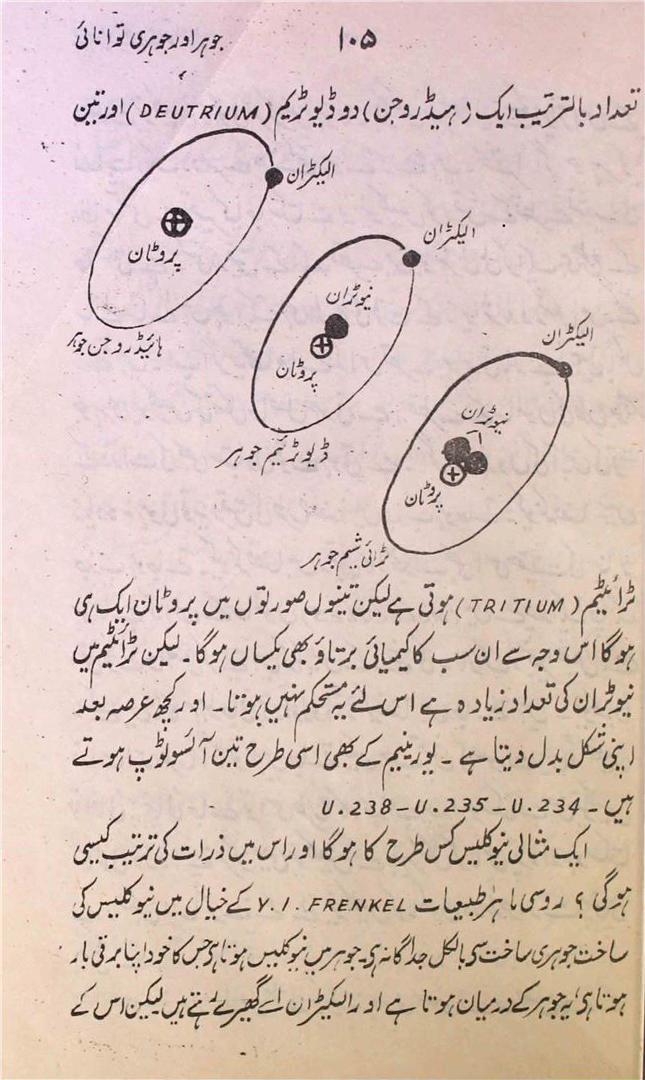 جوہر اور جوہری توانائی
۱۰۵
تعداد بالترتیب ایک (ہیڈروجن) دو ڈیوٹریم (DEUTRIUM) اور تین
الیکٹران
پروٹان
ہائیڈروجن جوہر
الیکٹران
نیوٹران
پروٹان
ڈیوٹرئیم جوہر
الیکٹران
نیوٹران
پروٹان
ٹرائی شیم جوہر
ٹرائیٹیم (TRITIUM) ہوتی ہے لیکن تینوں صورتوں میں پروٹان ایک ہی
ہوگا اس وجہ سے ان سب کا کیمیائی برتاؤ بھی یکساں ہوگا۔ لیکن ٹرائیٹیم میں
نیوٹران کی تعداد زیادہ ہے اس لئے یہ مستحکم نہیں ہوتا۔ اور کچھ عرصہ بعد
اپنی شکل بدل دیتا ہے۔ یورینیم کے بھی اسی طرح تین آئسوٹوپ ہوتے
ہیں۔ U.238-U.235-U.234
ایک مثالی نیوکلیس کس طرح کا ہوگا اور اس میں ذرات کی ترتیب کیسی
ہوگی؟ روسی ماہر طبیعات Y.I. FRENKEL کے خیال میں نیوکلیس کی
ساخت جوہری ساخت سی بالکل جداگانہ ہی۔ جوہر میں نیوکلیس ہوتا ہی جس کا خود اپنا برقی بار
ہوتا ہی، یہ جوہر کے درمیان ہوتا ہے اور الیکٹران اسے گھیرے رہتے ہیں لیکن اس کے